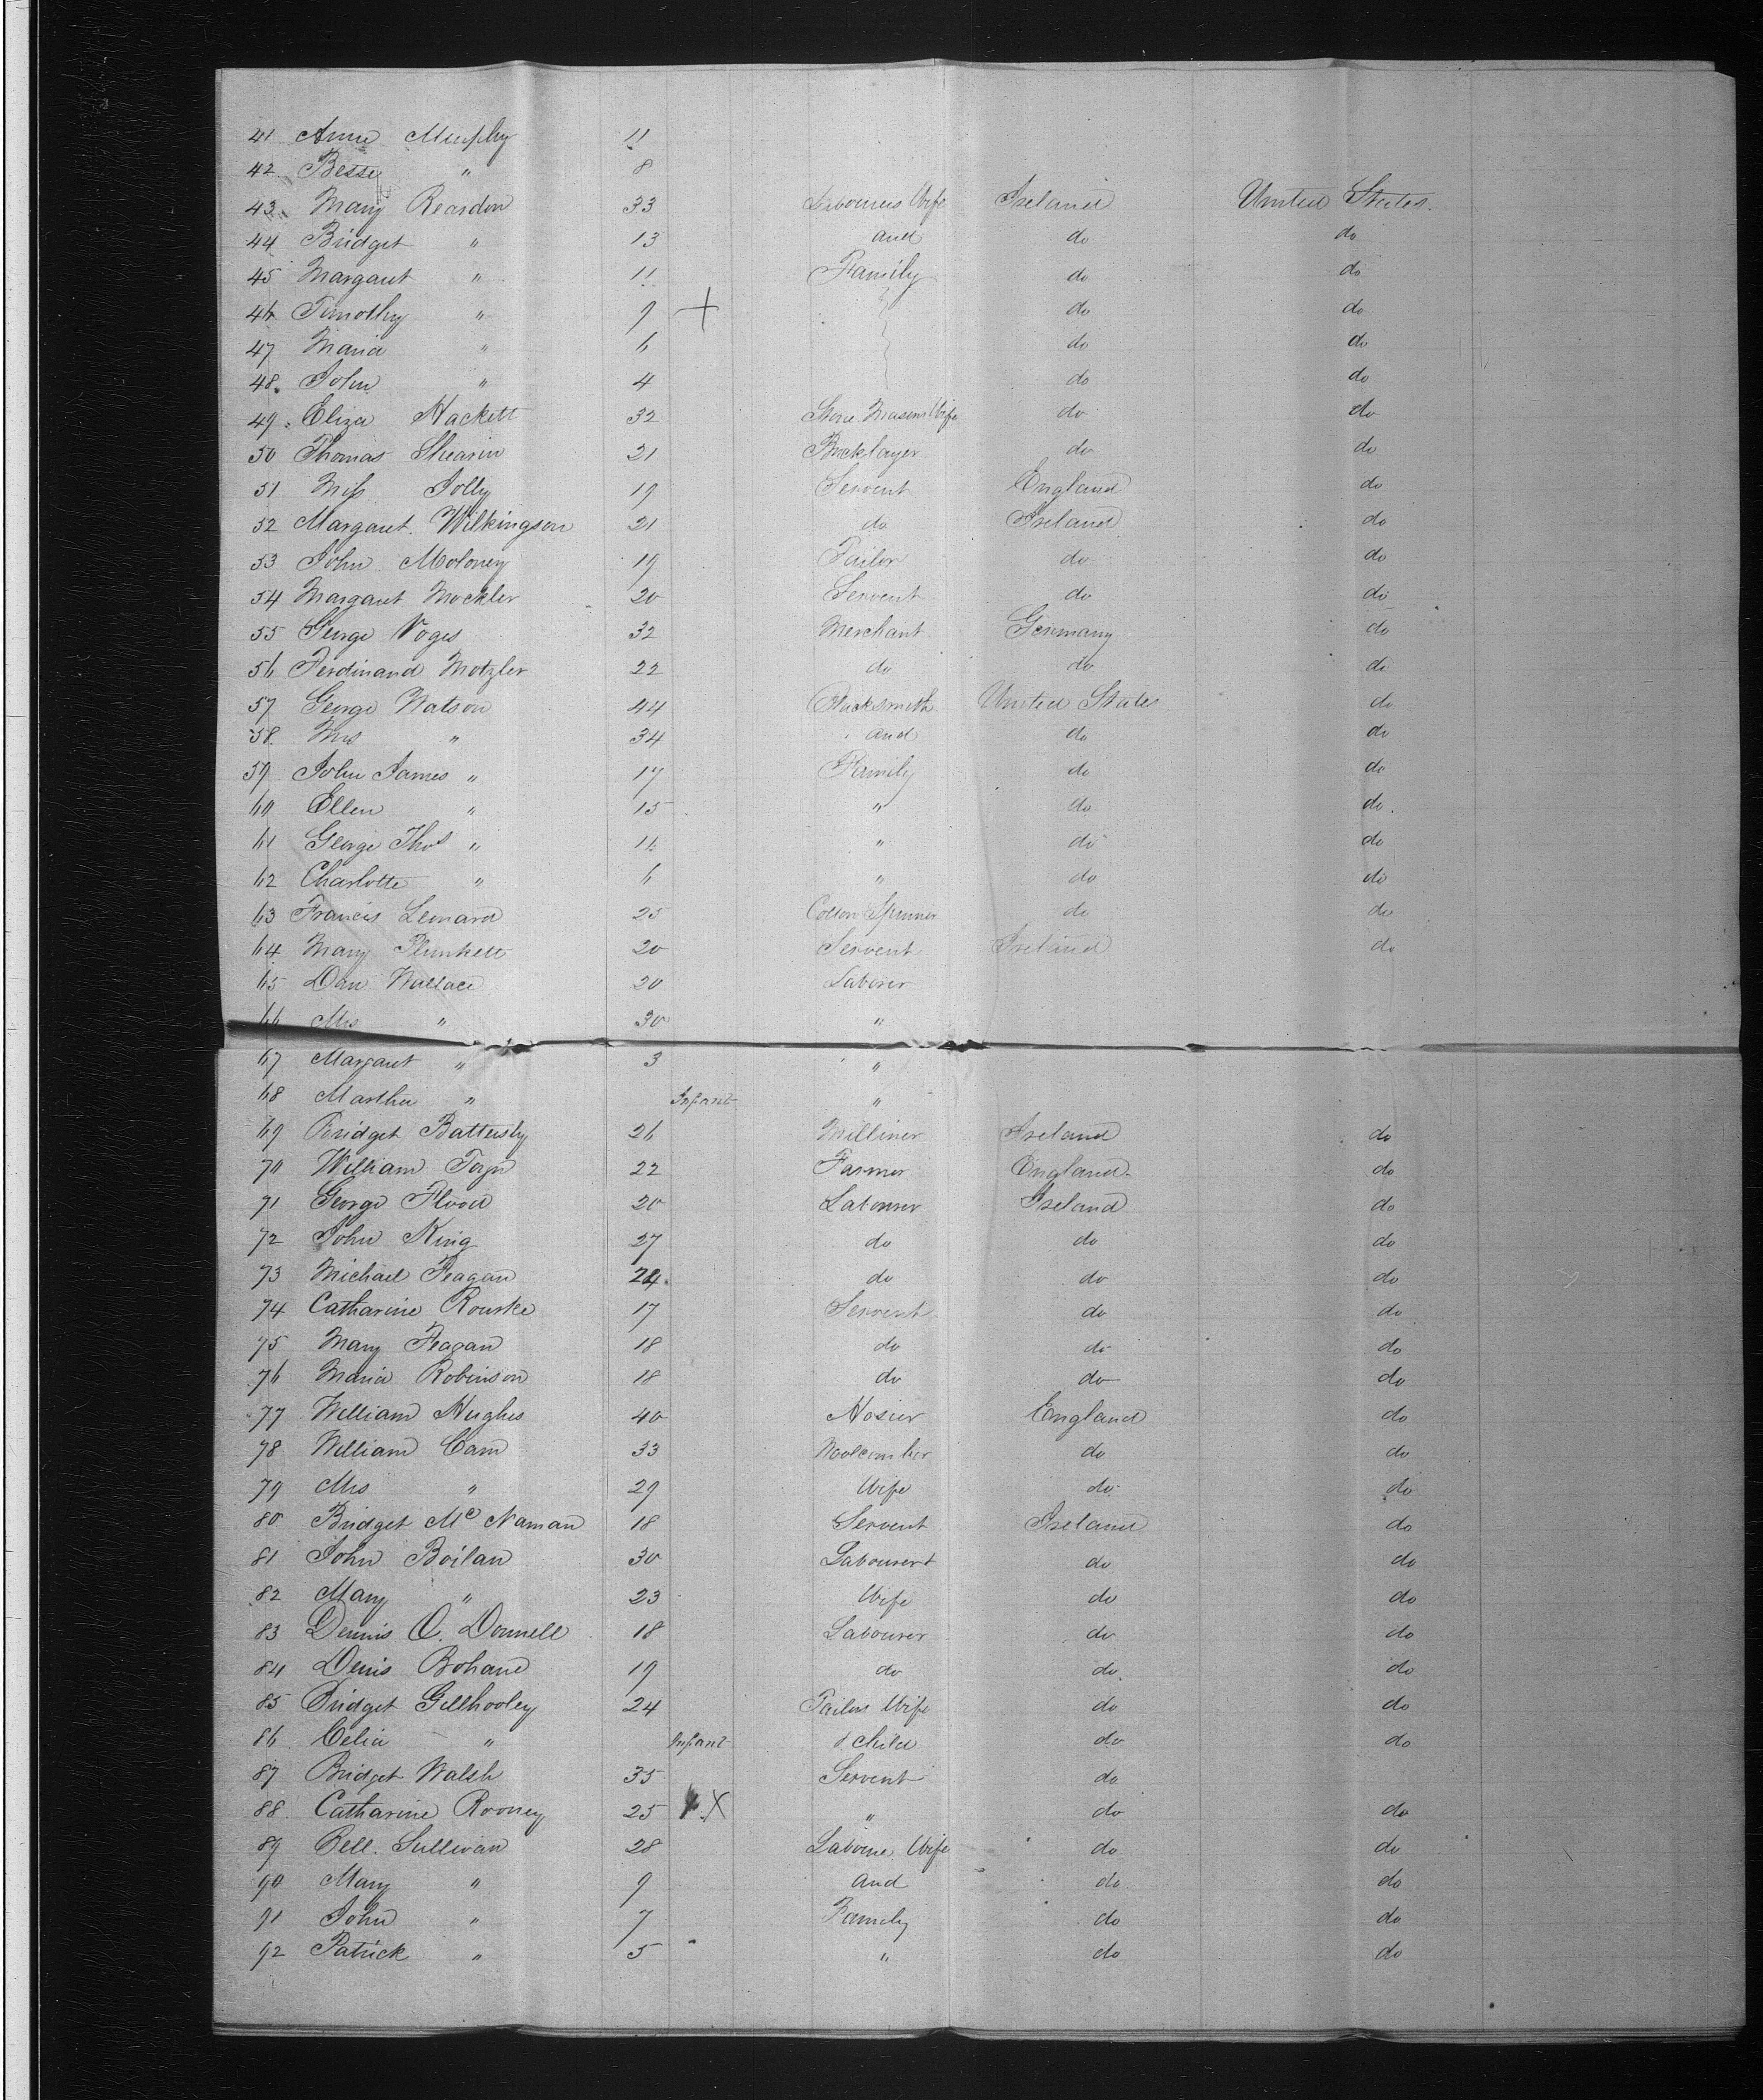 41 Anne Murphy 11
42 Bessy " 8
43 Mary Reardon 33 Labourers Wife Ireland United States.
44 Bridget " 13 and do do
45 Margaret " 11 Family do do
46 Timothy " 9 + do do
47 Maria " 6 do do
48 John " 4 do do
49 Eliza Hackett 32 Stone Masons Wife do do
50 Thomas Shearin 21 Bricklayer do do
51 Miss Jolly 19 Servent England do
52 Margaret Wilkingson 21 do Ireland do
53 John Moloney 19 Tailor do do
54 Margaret Mockler 20 Servent do do
55 George Voges 32 Merchant Germany do
56 Ferdinand Motzler 22 do do do
57 George Watson 44 Blacksmith United States do
58 Mrs " 34 and do do
59 John James " 17 Family do do
60 Ellen " 15 " do do
61 George Thos " 11 " do do
62 Charlotte " 6 " do do
63 Francis Leonard 25 Cotton Spinner do do
64 Mary Plunkett 20 Servent Ireland do
65 Dan Wallace 20 Laborer
66 Mrs " 30 "
67 Margaret " 3 "
68 Martha " Infant "
69 Bridget Battersby 26 Milliner Ireland do
70 William 22 Farmer England do
71 George Flood 20 Labourer Ireland do
72 John King 27 do do do
73 Michael Feagan 24 do do do
74 Catharine Rourke 17 Servent do do
75 Mary Feagan 18 do do do
76 Maria Robinson 18 do do do
77 William Hughes 40 Hosier England do
78 William Cam 33 Woolcomber do do
79 Mrs " 29 Wife do do
80 Bridget Mc Naman 18 Servent Ireland do
81 John Boilan 30 Labourer & do do
82 Mary " 23 Wife do do
83 Dennis O. Donnell 18 Labourer do do
84 Denis Bohane 19 do do do
85 Bridget Gillhooley 24 Tailors Wife do do
86 Celia " Infant & Child do do
87 Bridget Walsh 35 Servent do
88 Catharine Rooney 25 X " do do
89 Bell. Sullivan 28 Laborer Wife do do
90 Mary " 9 and do do
91 John " 7 Family do do
92 Patrick " 5 " do do